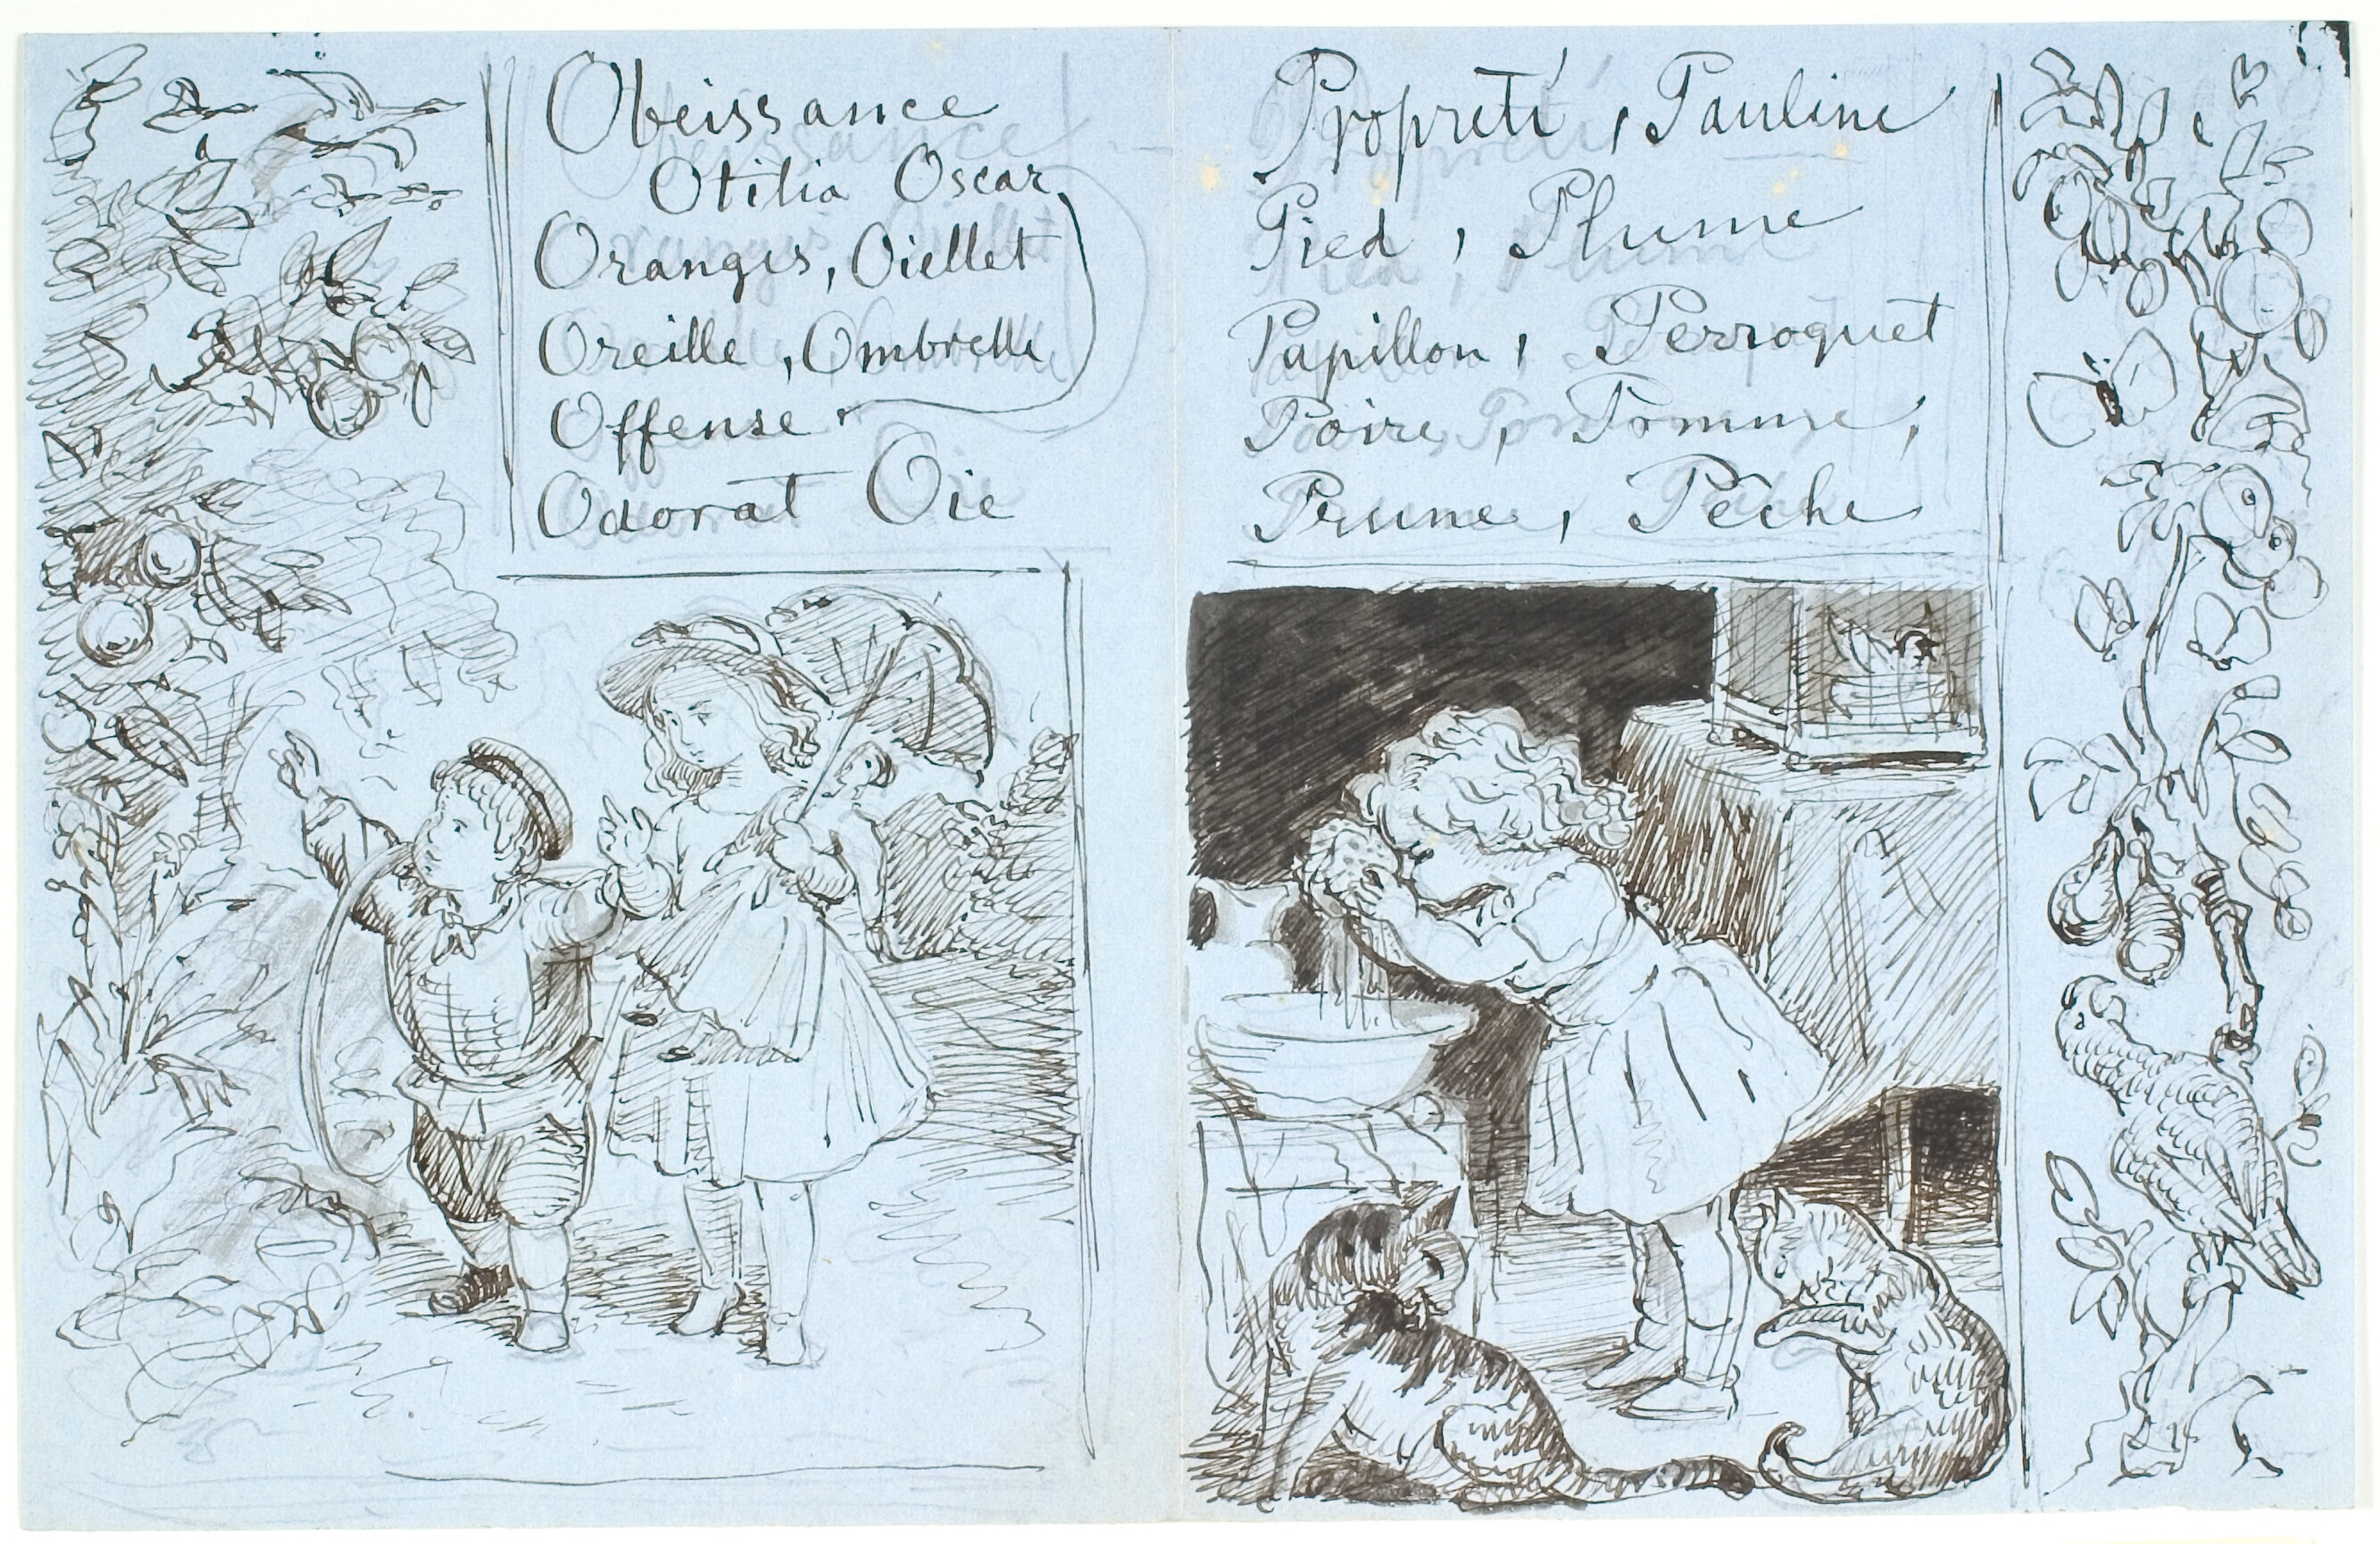 Obeissance
Otilia Oscar
Oranges, Oiellet
Oreille, Ombrelle
Offense
Odorat Oie
Propreté, Pauline
Pied, Plume
Papillon, Perroquet
Poire, Pomme,
Prune, Pêche